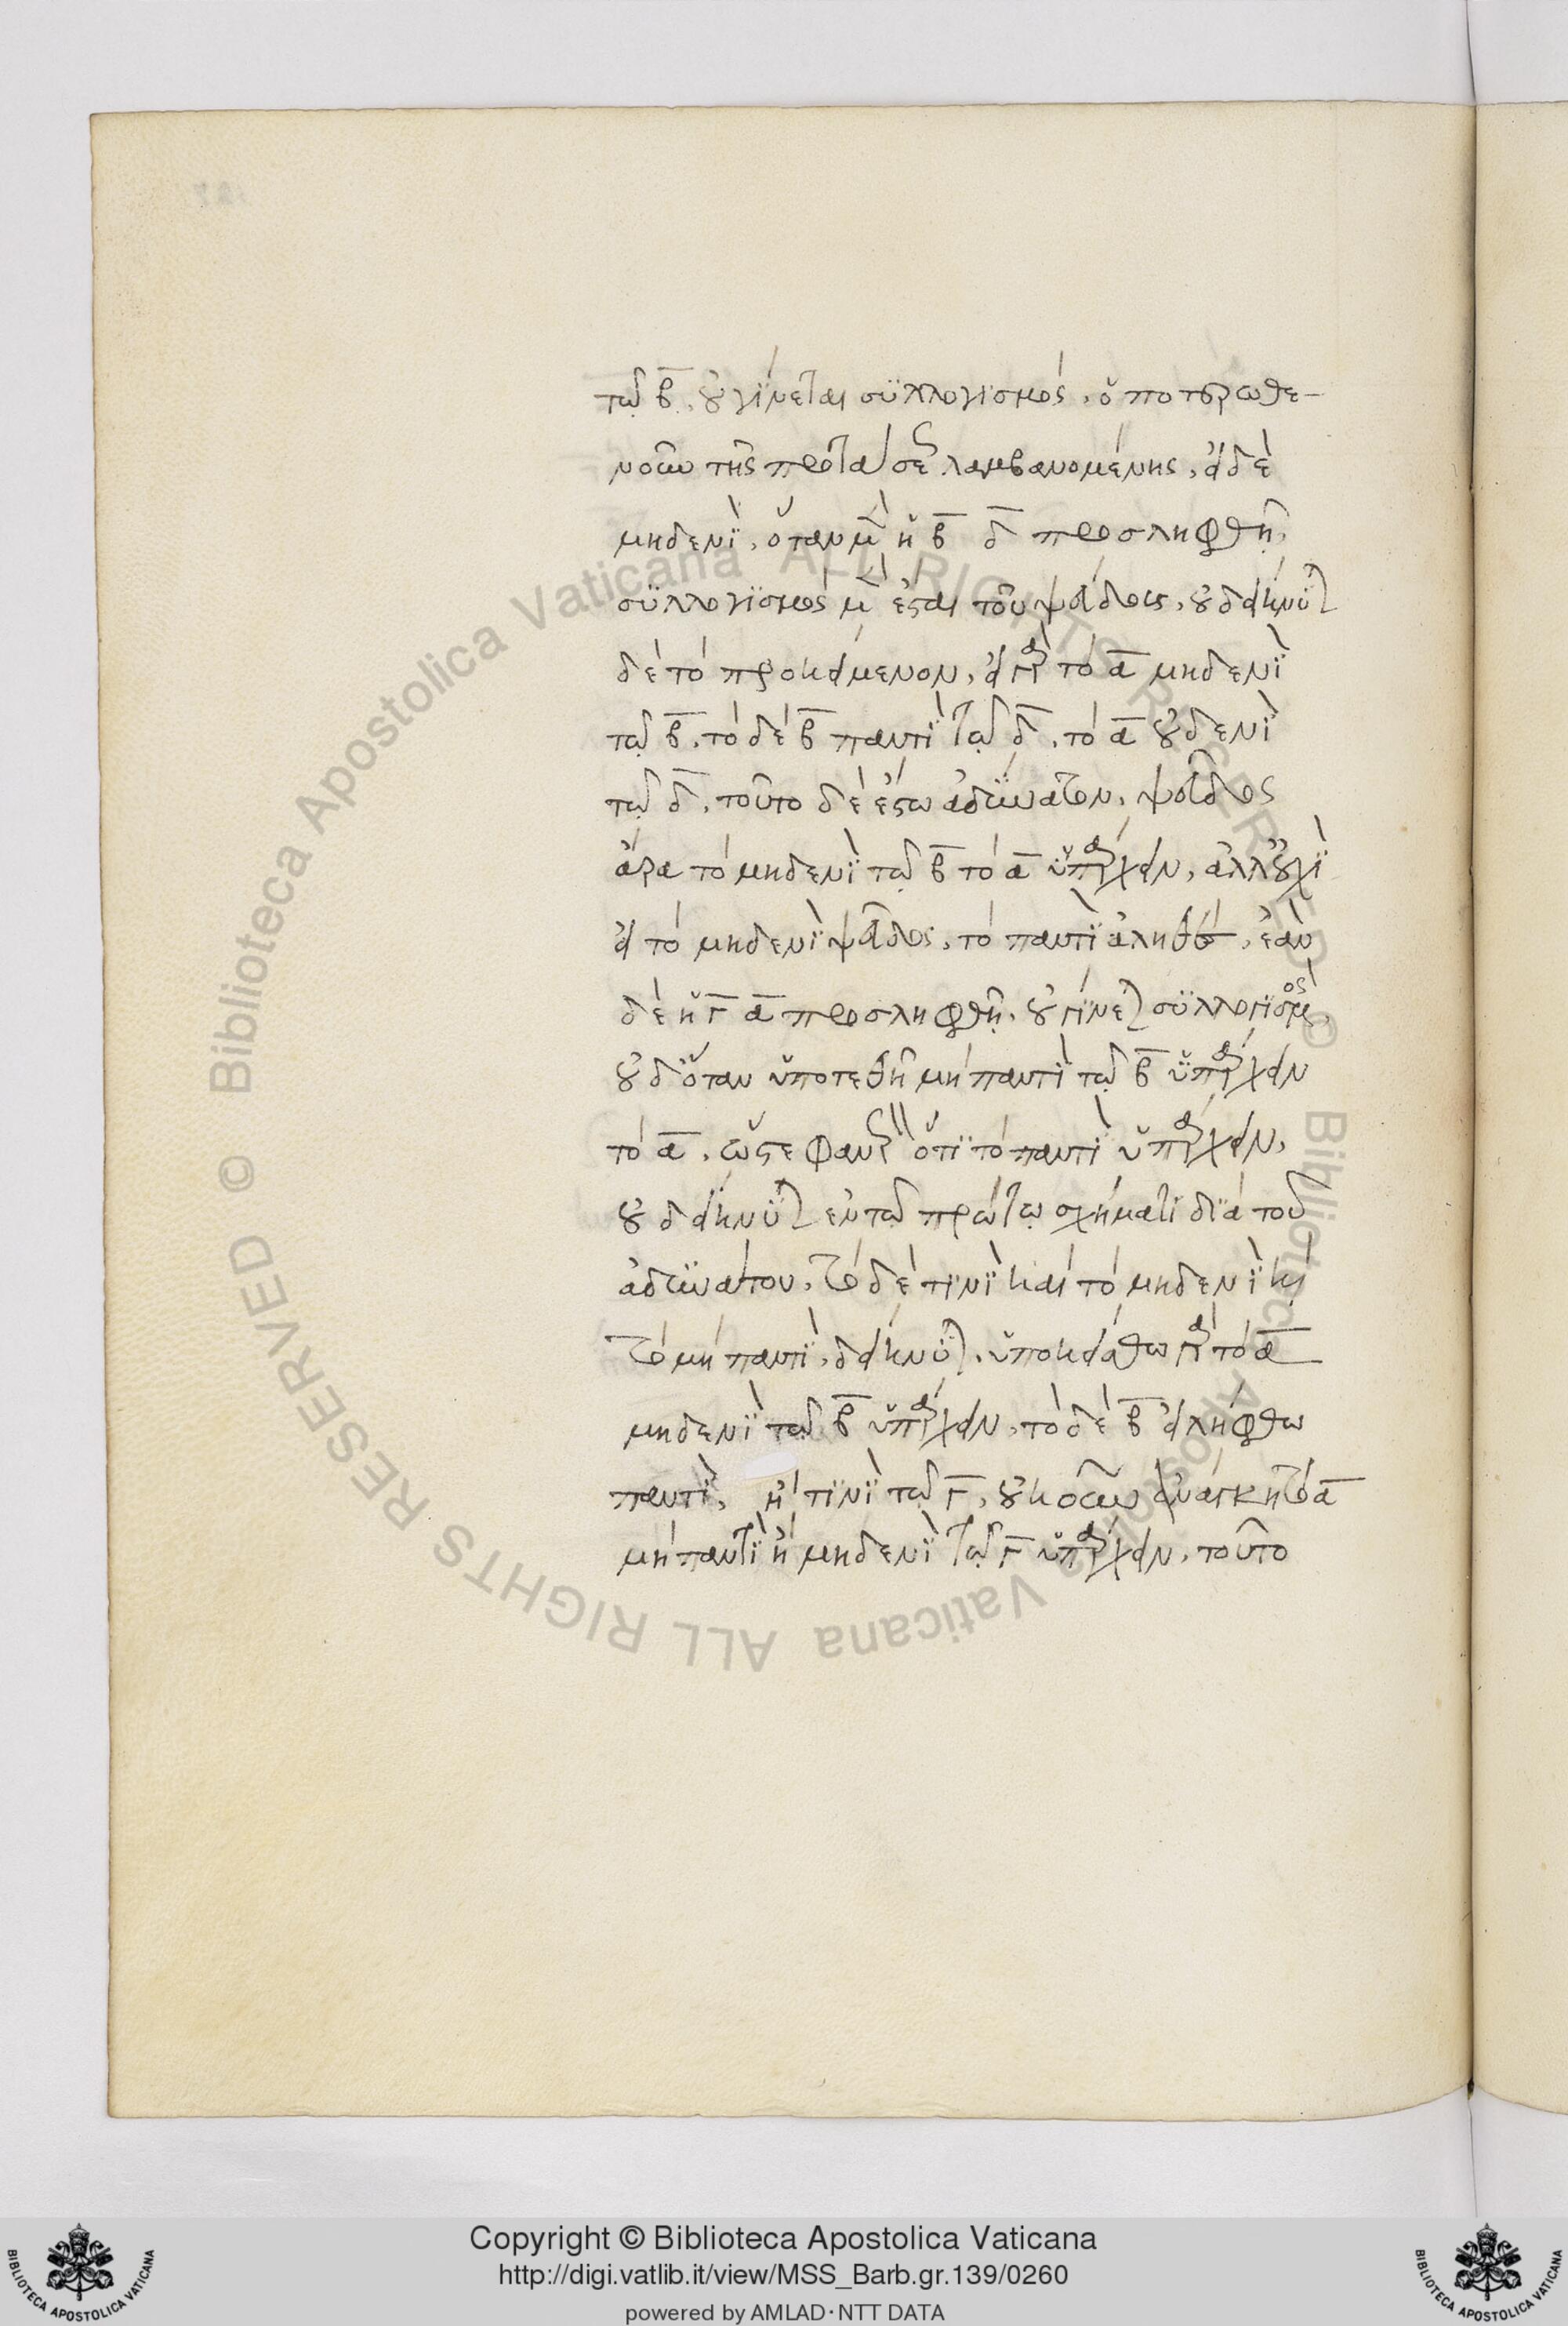 τῷ β̅, οὐ γίνεται συλλογισμός, ὁποτερωθε-
νοῦν τῆς προτάσεως λαμβανομένης, εἰ δὲ
μηδενὶ, ὅταν μὲν ἡ β̅ δ̅ προσληφθῇ,
συλλογισμὸς μὲν ἔσται τοῦ ψεύδους, οὐ δείκνυται
δὲ τὸ προκείμενον, εἰ γὰρ τὸ α̅ μηδενὶ
τῷ β̅, τὸ δὲ β̅ παντὶ τῷ δ̅, τὸ α̅ οὐδενὶ
τῷ δ̅, τοῦτο δὲ ἔστω ἀδύνατον, ψεῦδος
ἄρα τὸ μηδενὶ τῷ β̅ τὸ α̅ ὑπάρχειν, ἀλλ' οὐχὶ
εἰ τὸ μηδενὶ ψεῦδος, τὸ παντὶ ἀληθές, ἐὰν
δὲ ἡ γ̅ α̅ προσληφθῇ, οὐ γίνεται συλλογισμός,
οὐδ' ὅταν ὑποτεθῇ μὴ παντὶ τῷ β̅ ὑπάρχειν
τὸ α̅, ὥστε φανερὸν ὅτι τὸ παντὶ ὑπάρχειν,
οὐ δείκνυται ἐν τῷ πρώτῳ σχήματι διὰ τοῦ
ἀδυνάτου, τὸ δέ τινὶ καὶ τὸ μηδενὶ καὶ
τὸ μὴ παντὶ, δείκνυται, ὑποκείσθω γὰρ τὸ α̅
μηδενὶ τῷ β̅ ὑπάρχειν, τὸ δὲ β̅ εἰλήφθω
παντὶ, ἤ τινὶ τῷ γ̅, οὐκοῦν ἀνάγκη τὸ α̅
μὴ παντὶ ἢ μηδενὶ τῷ γ̅ ὑπάρχειν, τοῦτο
Copyright © Biblioteca Apostolica Vaticana
http://digi.vatlib.it/view/MSS_Barb.gr.139/0260
powered by AMLAD·NTT DATA